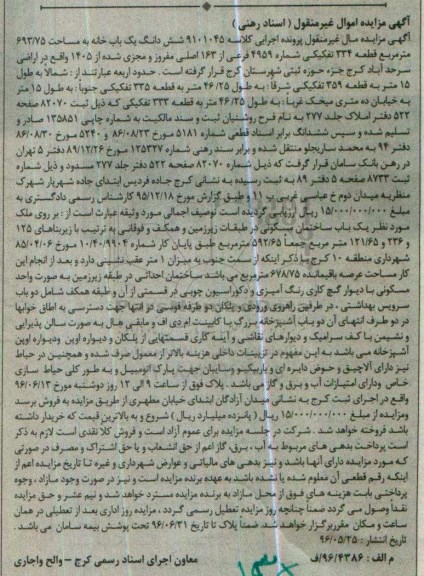 آگهی مزایده اموال غیرمنقول ( اسناد رهنی )
آگهی مزایده مال غیرمنقول پرونده اجرایی کلاسه ۹۱۰۱۰۴۵ شش دانگ یک باب خانه به مساحت ۶۹۳/۷۵
مترمربع قطعه ۳۳۴ تفکیکی شماره ۴۹۵۹ فرعی از ۱۶۳ اصلی مفروز و مجزی شده از ۱۴۰۵ واقع در اراضی
سرحد آباد کرج جزء حوزه ثبتی شهرستان کرج قرار گرفته است . حدود اربعه عبارتند از : شمالا به طول
۱۵ متر به قطعه ۳۵۹ تفکیکی شرقاً : به طول ۴۶/۲۵ متر به قطعه ۳۳۵ تفکیکی جنوباً : به طول ۱۵ متر
به خیابان ده متری میخک غرباً : به طول ۴۶/۲۵ متر به قطعه ۳۳۳ تفکیکی که ذیل ثبت ۸۲۰۷۰ صفحه
۵۲۲ دفتر املاک جلد ۲۷۷ به نام فرح روشنیان ثبت و سند مالکیت به شماره چاپی ۱۳۵۸۵۱ صادر و
تسلیم شده و سپس ششدانگ برابر اسناد قطعی شماره ۵۱۸۱ مورخ ۸۶/۰۸/۲۳ و ۵۲۴۰ مورخ ۸۶/۰۸/۳۰
دفتر ۹۴ به محمد ساریجلو منتقل شده و برابر سند رهنی شماره ۱۲۵۳۲۷ مورخ ۸۹/۱۲/۲۶ دفتر ۵ تهران
در رهن بانک سامان قرار گرفت که ذیل شماره ۸۲۰۷۰ صفحه ۵۲۲ دفتر جلد ۲۷۷ مسدود و ذیل شماره
ثبت ۸۷۳۳ صفحه ۵ دفتر ۸۹ به ثبت رسیده به نشانی کرج جاده فردیس ابتدای جاده شهریار شهرک
منظریه میدان دوم خ عباسی غربی پ ۱۱ و طبق گزارش مورخ ۹۵/۱۲/۱۸ کارشناس رسمی دادگستری به
مبلغ ۱۵/۰۰۰/۰۰۰/۰۰۰ ریال ارزیابی گردیده است توصیف اجمالی مورد وثیقه عبارت است از : بر روی ملک
مورد نظر یک باب ساختمان مسکونی در طبقات زیرزمین و همکف و فوقانی به ترتیب با زیربناهای ۱۲۵
و ۲۳۶ و ۱۲۱/۶۵ متر مربع جمعاً ۵۹۲/۶۵ مترمربع طبق پایان کار شماره ۱۰/۴۰/۹۹۰۴ مورخ ۸۵/۰۴/۰۶
شهرداری منطقه ۱۰ کرج با ذکر اینکه از سمت جنوب به میزان ۱ متر عقب نشینی دارد و بعد از انجام این
کار مساحت عرصه باقیمانده ۶۷۸/۷۵ مترمربع می باشد ساختمان احداثی در طبقه زیرزمین به صورت واحد
مسکونی با دیوار گچ کاری رنگ آمیزی و دکوراسیون چوبی در قسمتی از آن و طبقه همکف شامل دو باب
سرویس بهداشتی ، در طرفین راهروی ورودی و پلکان دو طرفه قوسی در انتها جهت دسترسی به اطاق خوابها
در دو طرف انتهای آن دو باب آشپزخانه بزرگ با کابینت ام دی اف و مابقی هال به صورت سالن پذیرایی
و نشیمن با کف سرامیک و دیوارهای نقاشی و آینه کاری قسمتهایی از پلکان و دیواره اوپن ودیواره اوپن
آشپزخانه می باشد به این مفهوم در تزیینات داخلی هزینه بالاتر از معمول صرف شده و همچنین در حیاط
نیز دارای آلاچیق و حوض دایره ای و باربیکیو وسایبان جهت پارک اتومبیل و به طور کلی حیاط سازی
خاص ودارای امتیازات آب و برق و گاز می باشد . پلاک فوق از ساعت ۹ الی ۱۲ روز دوشنبه مورخ ۹۶/۰۶/۱۳
واقع در اجرای ثبت کرج به نشانی میدان آزادگان ابتدای خیابان مطهری از طریق مزایده به فروش برسد
ومزایده از مبلغ ۱۵/۰۰۰/۰۰۰/۰۰۰ ریال ( پانزده میلیارد ریال ) شروع و به بالاترین قیمت که خریدار داشته
باشد فروخته خواهد شد . شرکت در جلسه مزایده برای عموم آزاد است و فروش کلا نقدی است لازم به ذکر
است پرداخت بدهی های مربوط به آب ، برق، گاز اعم از حق انشعاب و یا حق اشتراک و مصرف در صورتی
که مورد مزایده دارای آنها باشد و نیز بدهی های مالیاتی و عوارض شهرداری و غیره تا تاریخ مزایده اعم از
اینکه رقم قطعی آن معلوم شده یا نشده باشد به عهده برنده مزایده است و نیز در صورت وجود مازاد ، وجوه
پرداختی بابت هزینه های فوق از محل مازاد به برنده مزایده مسترد خواهد شد و نیم عشر و حق مزایده
نقداً وصول می گردد ضمناً چنانچه روز مزایده تعطیل رسمی گردد ، مزایده روز اداری بعد از تعطیلی در همان
ساعت و مکان مقرر برگزار خواهد شد. ضمناً پلاک تا تاریخ ۹۶/۰۶/۳۱ تحت پوشش بیمه سامان می باشد .
تاریخ انتشار : ۹۶/۰۵/۲۵
م الف : ۹۶/۴۳۸۶/ف معاون اجرای اسناد رسمی کرج – والح واجاری